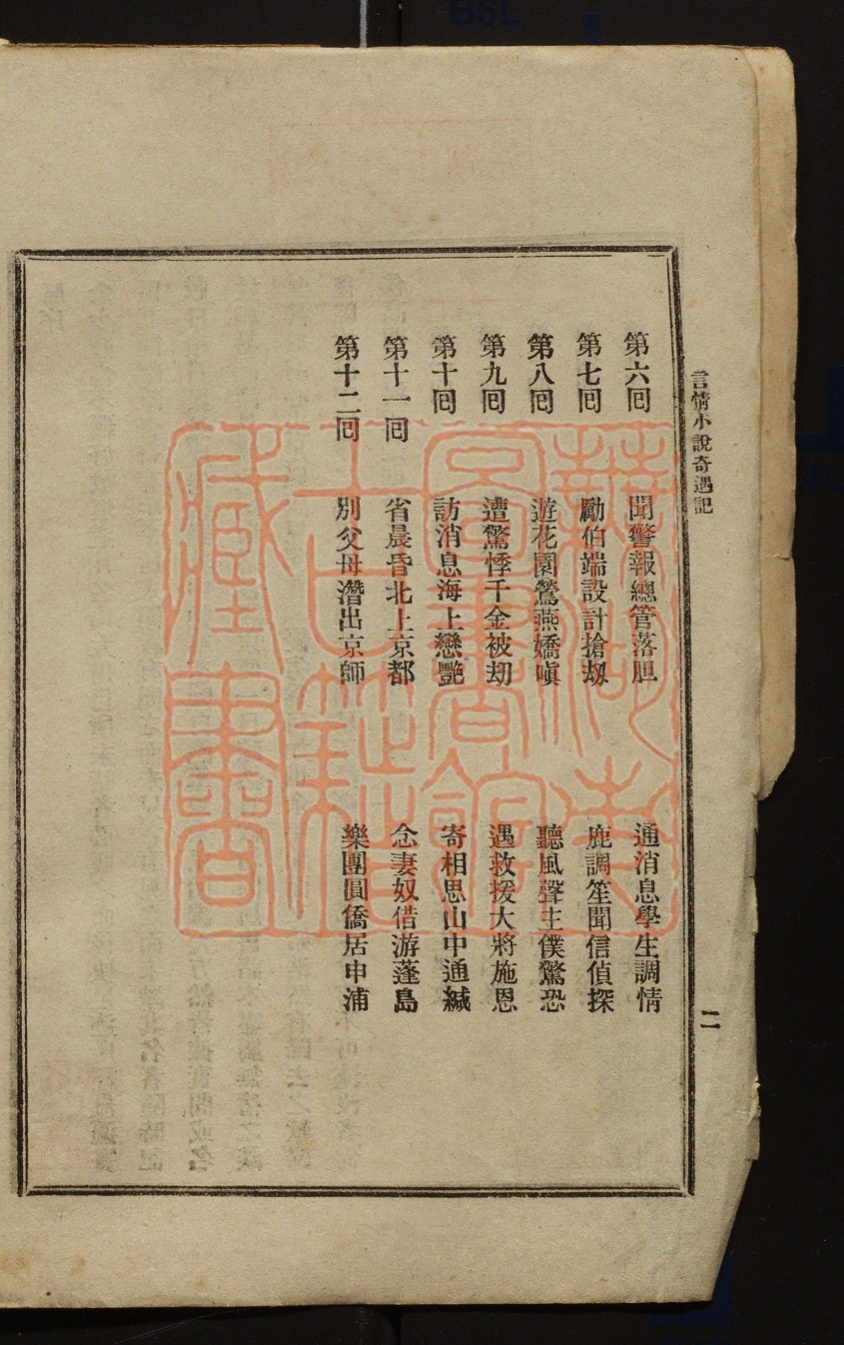 言情小說奇遇記
二
第六囘 聞警報總管落胆 通消息學生調情
第七囘 勵伯端設計搶刼 鹿調笙聞信偵探
第八囘 遊花園鶯燕嬌嗔 聽風聲主僕驚恐
第九囘 遭驚悸千金被刧 遇救援大將施恩
第十囘 訪消息海上戀艷 寄相思山中通緘
第十一囘 省晨昏北上京都 念妻奴借游蓬島
第十二囘 別父母潛出京師 樂團圓僑居申浦
藏書